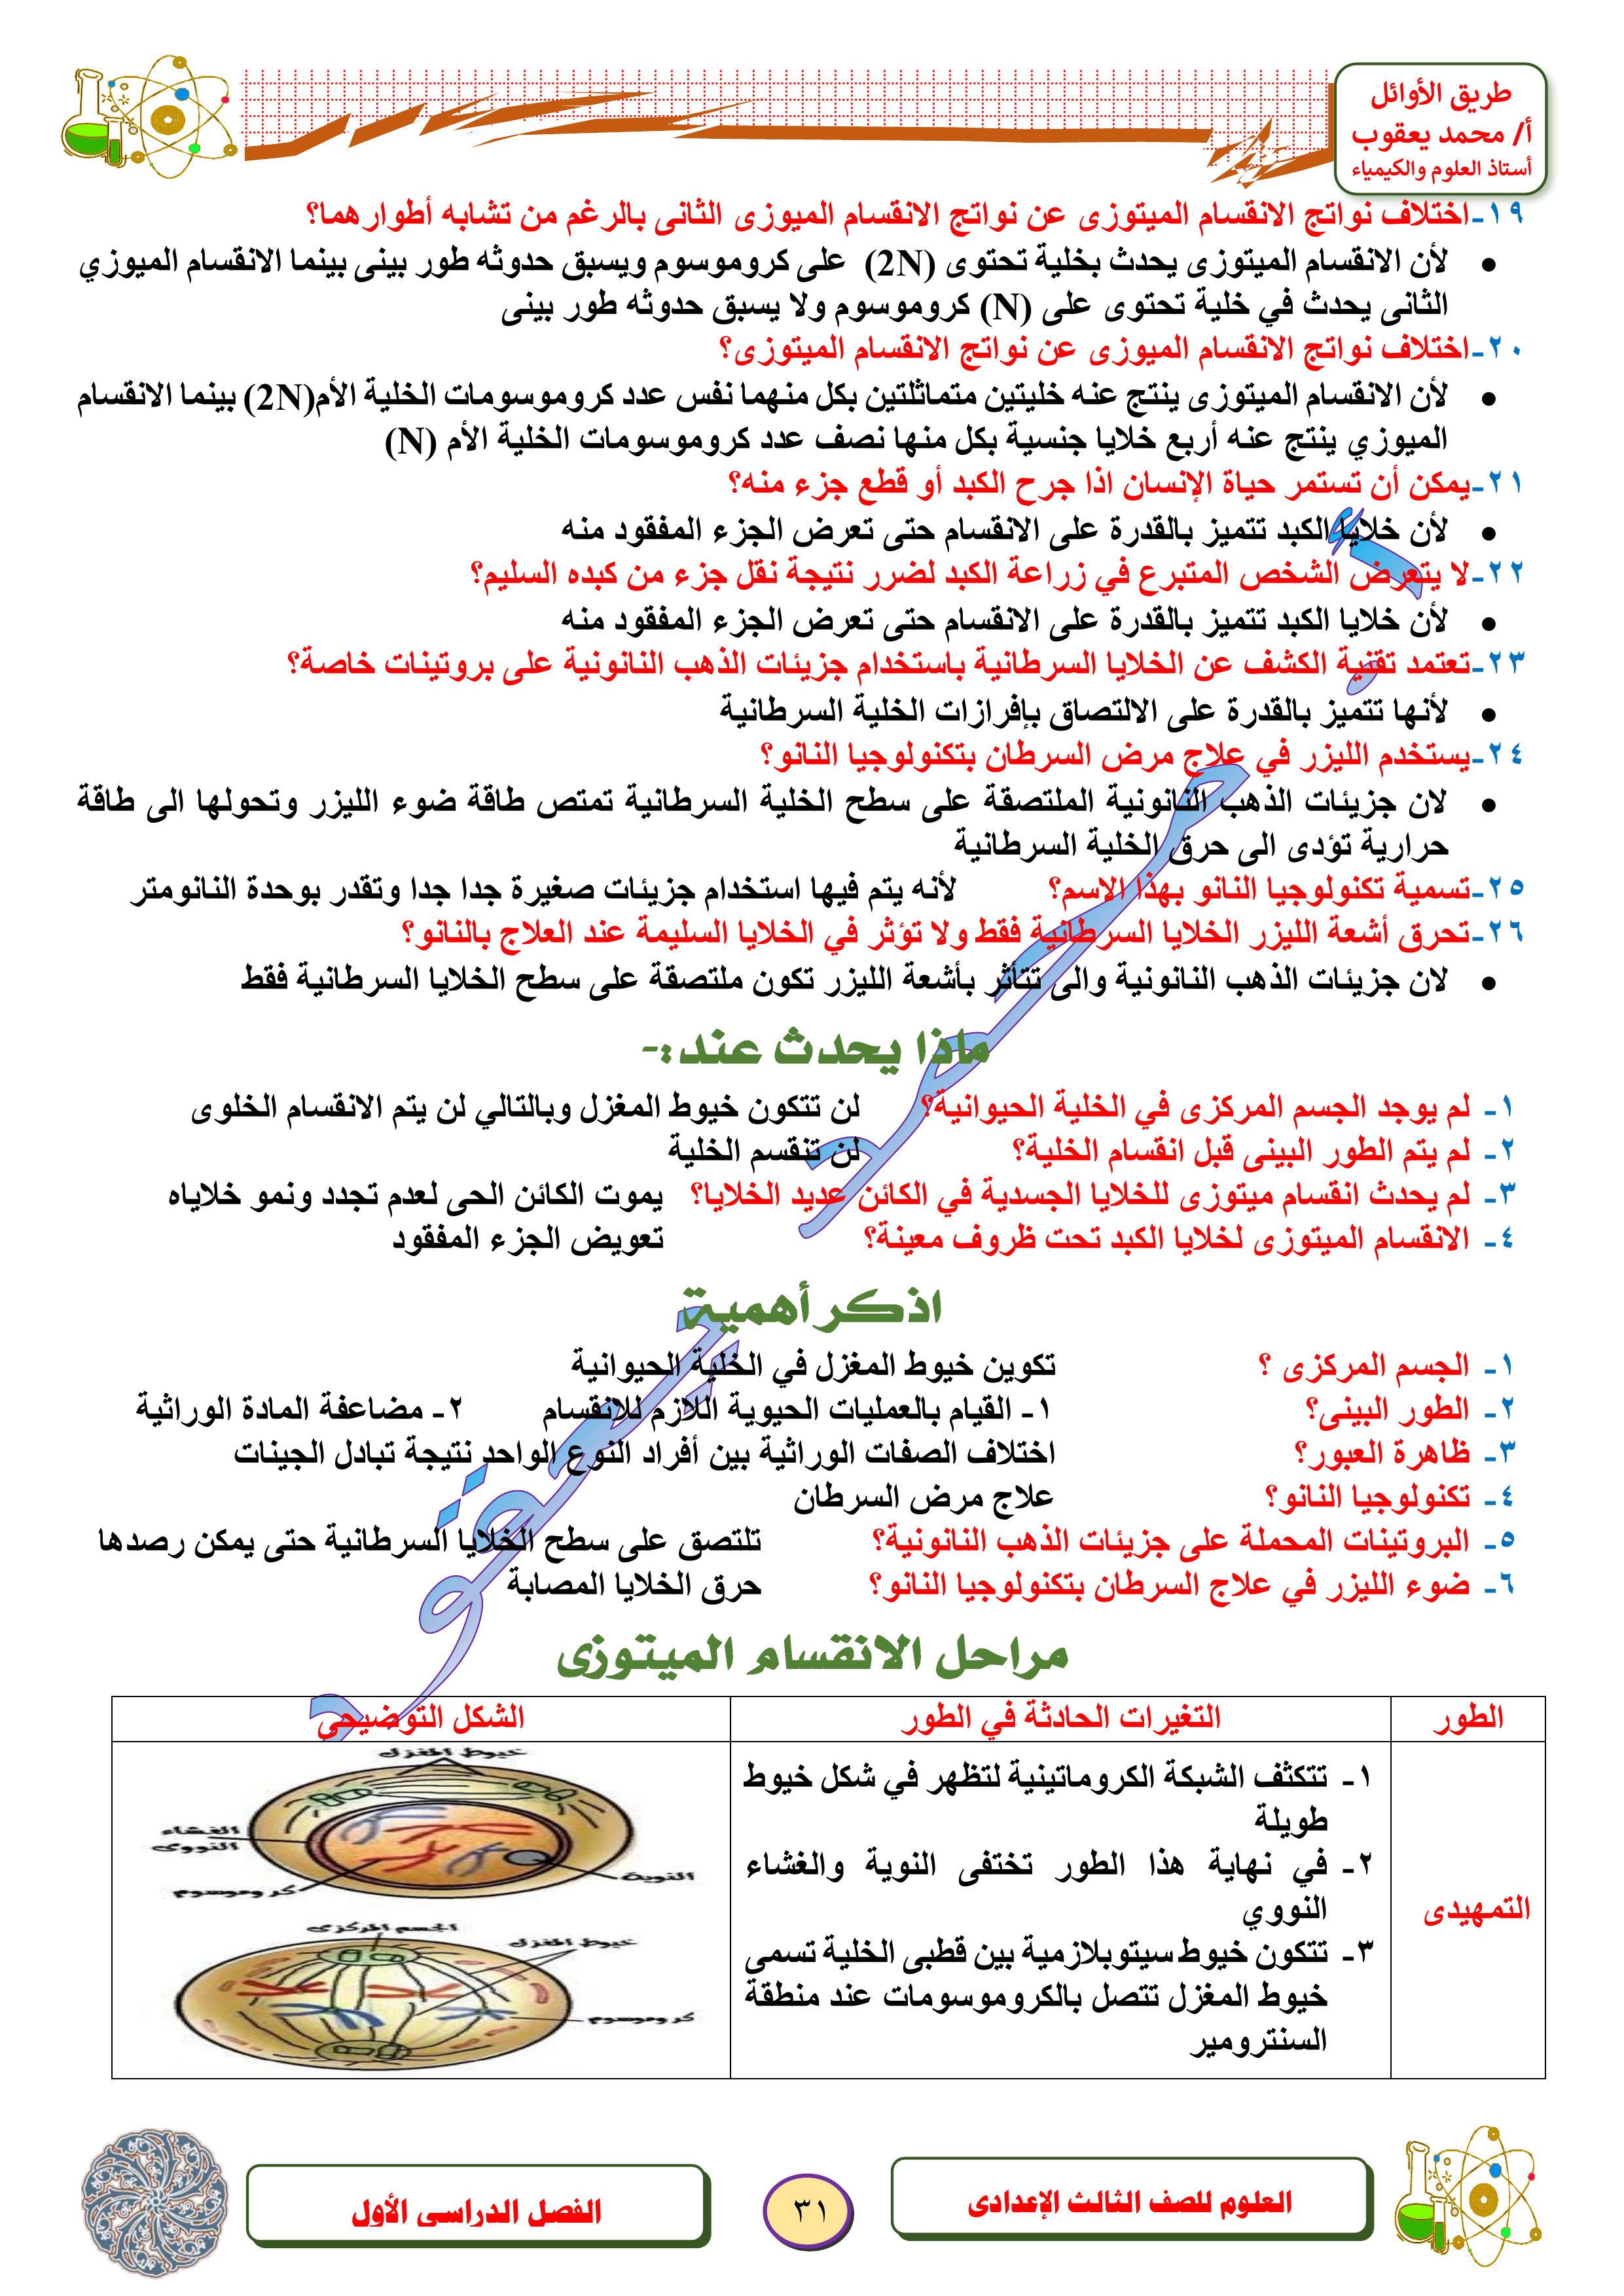 طريق الأوائل
أ/ محمد يعقوب
أستاذ العلوم والكيمياء
١٩-اختلاف نواتج الانقسام الميتوزى عن نواتج الانقسام الميوزى الثانى بالرغم من تشابه أطوارهما؟
• لأن الانقسام الميتوزى يحدث بخلية تحتوى (2N) على كروموسوم ويسبق حدوثه طور بينى بينما الانقسام الميوزي
الثانى يحدث في خلية تحتوى على (N) كروموسوم ولا يسبق حدوثه طور بينى
٢٠-اختلاف نواتج الانقسام الميوزى عن نواتج الانقسام الميتوزى؟
• لأن الانقسام الميتوزى ينتج عنه خليتين متماثلتين بكل منهما نفس عدد كروموسومات الخلية الأم(2N) بينما الانقسام
الميوزي ينتج عنه أربع خلايا جنسية بكل منها نصف عدد كروموسومات الخلية الأم (N)
٢١-يمكن أن تستمر حياة الإنسان اذا جرح الكبد أو قطع جزء منه؟
• لأن خلايا الكبد تتميز بالقدرة على الانقسام حتى تعرض الجزء المفقود منه
٢٢-لا يتعرض الشخص المتبرع في زراعة الكبد لضرر نتيجة نقل جزء من كبده السليم؟
• لأن خلايا الكبد تتميز بالقدرة على الانقسام حتى تعرض الجزء المفقود منه
٢٣-تعتمد تقنية الكشف عن الخلايا السرطانية باستخدام جزيئات الذهب النانونية على بروتينات خاصة؟
• لأنها تتميز بالقدرة على الالتصاق بإفرازات الخلية السرطانية
٢٤-يستخدم الليزر في علاج مرض السرطان بتكنولوجيا النانو؟
• لان جزيئات الذهب النانونية الملتصقة على سطح الخلية السرطانية تمتص طاقة ضوء الليزر وتحولها الى طاقة
حرارية تؤدى الى حرق الخلية السرطانية
٢٥-تسمية تكنولوجيا النانو بهذا الاسم؟ لأنه يتم فيها استخدام جزيئات صغيرة جدا جدا وتقدر بوحدة النانومتر
٢٦-تحرق أشعة الليزر الخلايا السرطانية فقط ولا تؤثر في الخلايا السليمة عند العلاج بالنانو؟
• لان جزيئات الذهب النانونية والى تتأثر بأشعة الليزر تكون ملتصقة على سطح الخلايا السرطانية فقط
ماذا يحدث عند:-
١- لم يوجد الجسم المركزى في الخلية الحيوانية؟ لن تتكون خيوط المغزل وبالتالي لن يتم الانقسام الخلوى
٢- لم يتم الطور البينى قبل انقسام الخلية؟ لن تنقسم الخلية
٣- لم يحدث انقسام ميتوزى للخلايا الجسدية في الكائن عديد الخلايا؟ يموت الكائن الحى لعدم تجدد ونمو خلاياه
٤- الانقسام الميتوزى لخلايا الكبد تحت ظروف معينة؟ تعويض الجزء المفقود
اذكر أهمية
١- الجسم المركزى ؟ تكوين خيوط المغزل في الخلية الحيوانية
٢- الطور البينى؟ ١- القيام بالعمليات الحيوية اللازم للانقسام ٢- مضاعفة المادة الوراثية
٣- ظاهرة العبور؟ اختلاف الصفات الوراثية بين أفراد النوع الواحد نتيجة تبادل الجينات
٤- تكنولوجيا النانو؟ علاج مرض السرطان
٥- البروتينات المحملة على جزيئات الذهب النانونية؟ تلتصق على سطح الخلايا السرطانية حتى يمكن رصدها
٦- ضوء الليزر في علاج السرطان بتكنولوجيا النانو؟ حرق الخلايا المصابة
مراحل الانقسام الميتوزى
الطور التغيرات الحادثة في الطور الشكل التوضيحى
التمهيدى
١- تتكثف الشبكة الكروماتينية لتظهر في شكل خيوط
طويلة
٢- في نهاية هذا الطور تختفى النوية والغشاء
النووي
٣- تتكون خيوط سيتوبلازمية بين قطبى الخلية تسمى
خيوط المغزل تتصل بالكروموسومات عند منطقة
السنترومير
خيوط المغزل
الغشاء
النووى
النوية
كروموسوم
الجسم المركزى
خيوط المغزل
كروموسوم
محمد يعقوب
العلوم للصف الثالث الإعدادى
٣١
الفصل الدراسى الأول